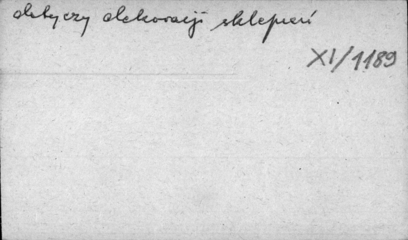 dotyczy dekoracji sklepień
XI/1189